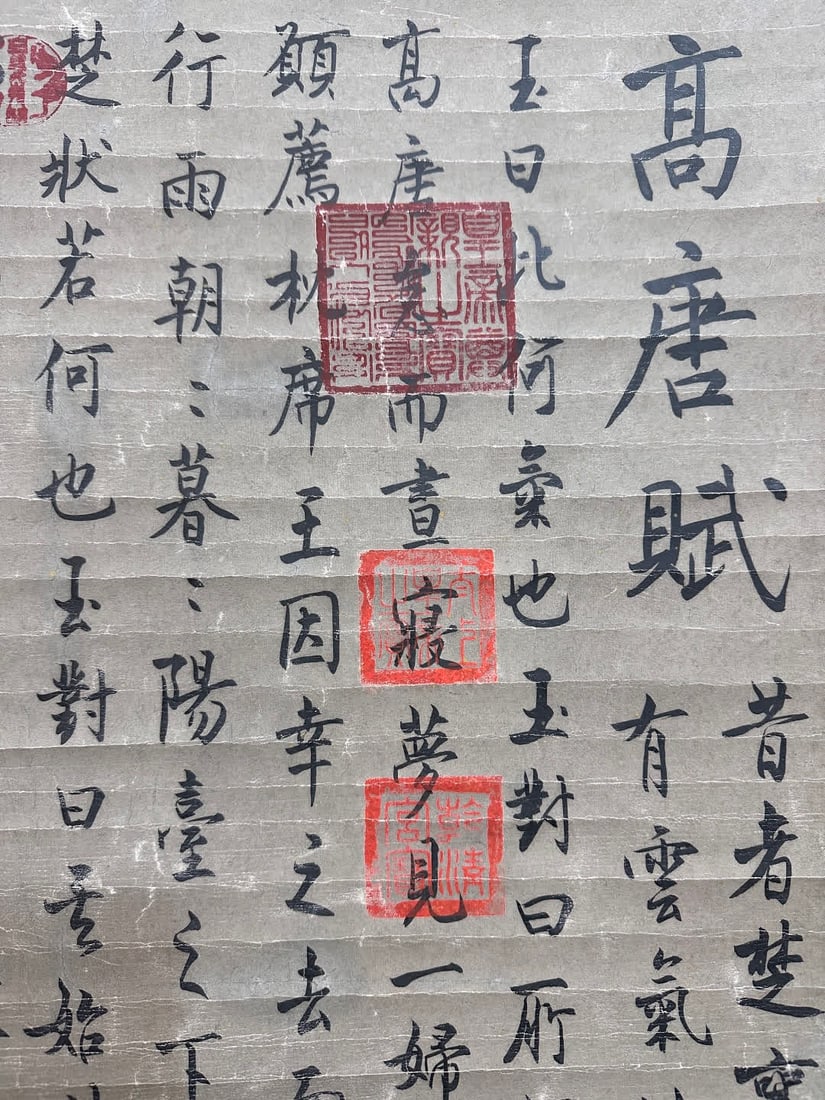 髙唐賦
昔者楚襄
有雲氣
玉曰此何氣也玉對曰所
髙唐而晝寢夢見一婦
願薦枕席王因幸之去而
行雨朝〻暮〻陽臺之下
楚狀若何也玉對曰其始
乾清宮寶